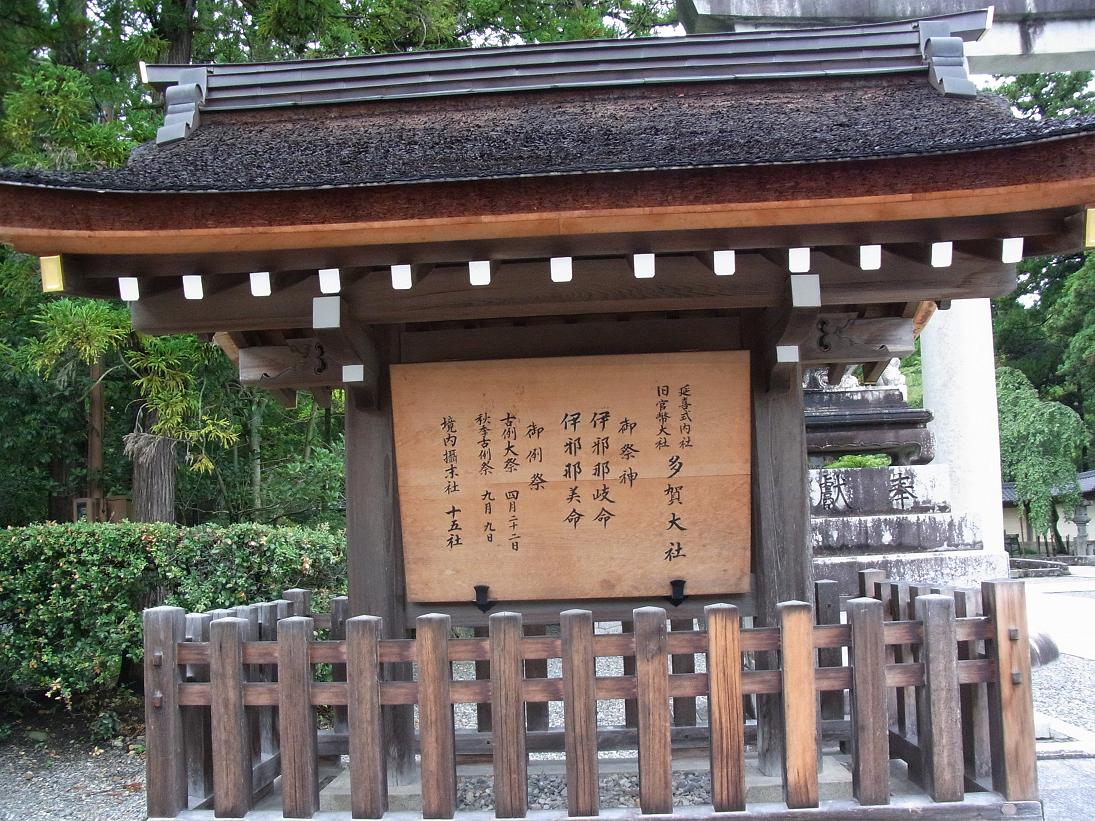 延喜式内社
旧官幣大社
多賀大社
御祭神
伊邪那岐命
伊邪那美命
御例祭
古例大祭 四月二十二日
秋季古例祭 九月九日
境内攝末社 十五社
奉
獻